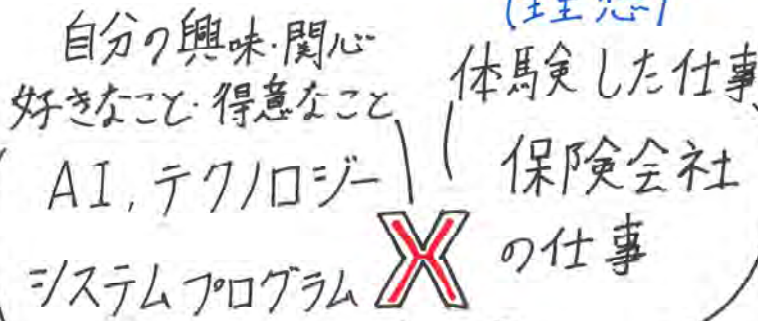 自分の興味・関心
好きなこと・得意なこと
AI,テクノロジー
システムプログラム
X
(理想)
体験した仕事
保険会社
の仕事